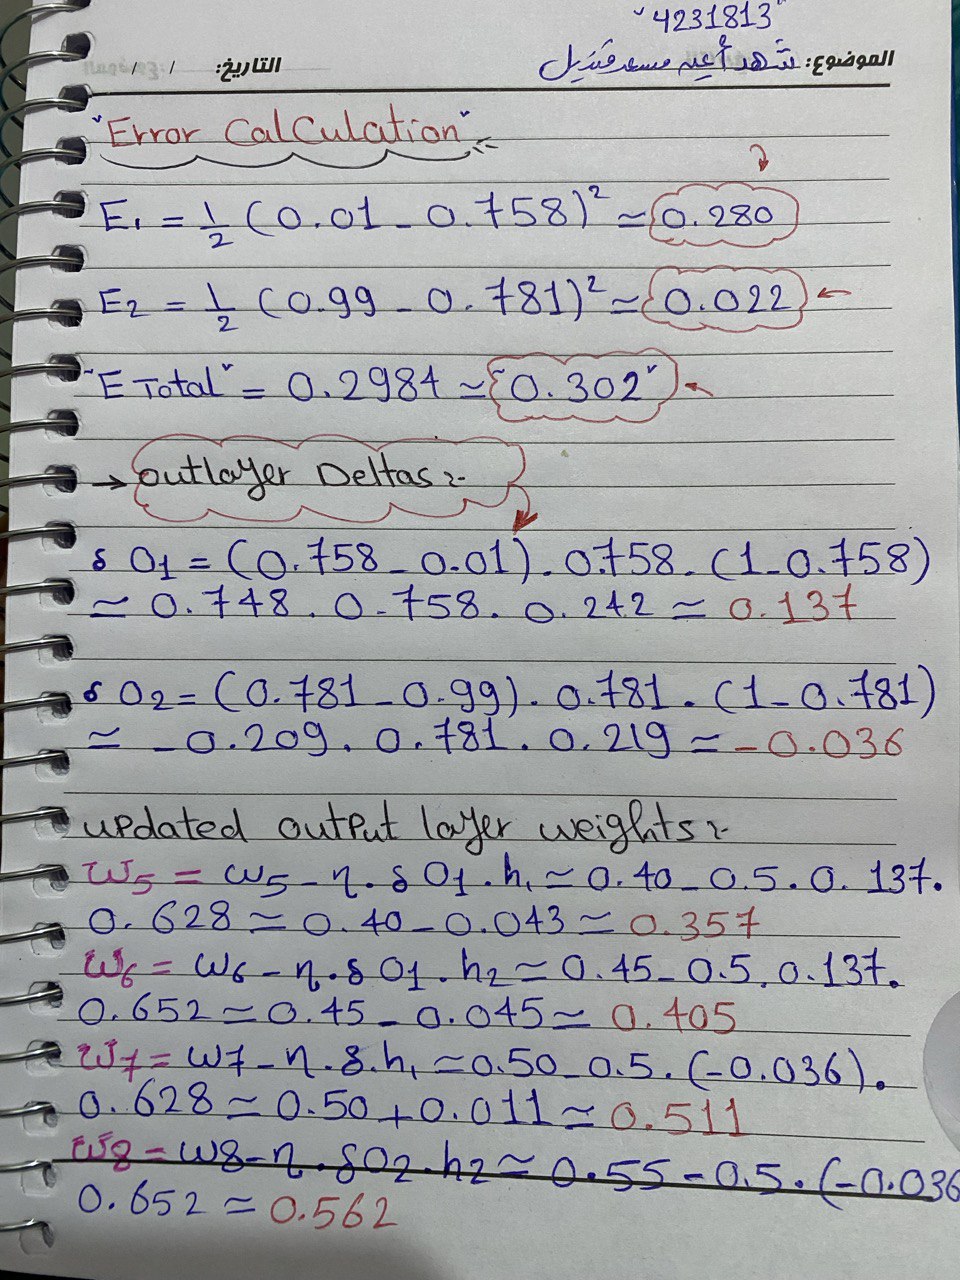 "4231813"
الموضوع: شهد أعيد مسعد قنديل
التاريخ: / /
"Error Calculation"
E₁ = 1/2 (0.01 - 0.758)² ≃ 0.280
E₂ = 1/2 (0.99 - 0.781)² ≃ 0.022
"E Total" = 0.2984 ≃ "0.302"
→ outlayer Deltas:-
δ O1 = (0.758 - 0.01) . 0.758 . (1 - 0.758)
≃ 0.748 . 0.758 . 0.242 ≃ 0.137
δ O2 = (0.781 - 0.99) . 0.781 . (1 - 0.781)
≃ -0.209 . 0.781 . 0.219 ≃ -0.036
updated output layer weights:-
w5 = w5 - η . δ O1 . h₁ ≃ 0.40 - 0.5 . 0.137 .
0.628 ≃ 0.40 - 0.043 ≃ 0.357
w6 = w6 - η . δ O1 . h2 ≃ 0.45 - 0.5 . 0.137 .
0.652 ≃ 0.45 - 0.045 ≃ 0.405
w7 = w7 - η . δ . h₁ ≃ 0.50 - 0.5 . (-0.036) .
0.628 ≃ 0.50 + 0.011 ≃ 0.511
w8 = w8 - η . δO2 . h2 ≃ 0.55 - 0.5 . (-0.036
0.652 ≃ 0.562